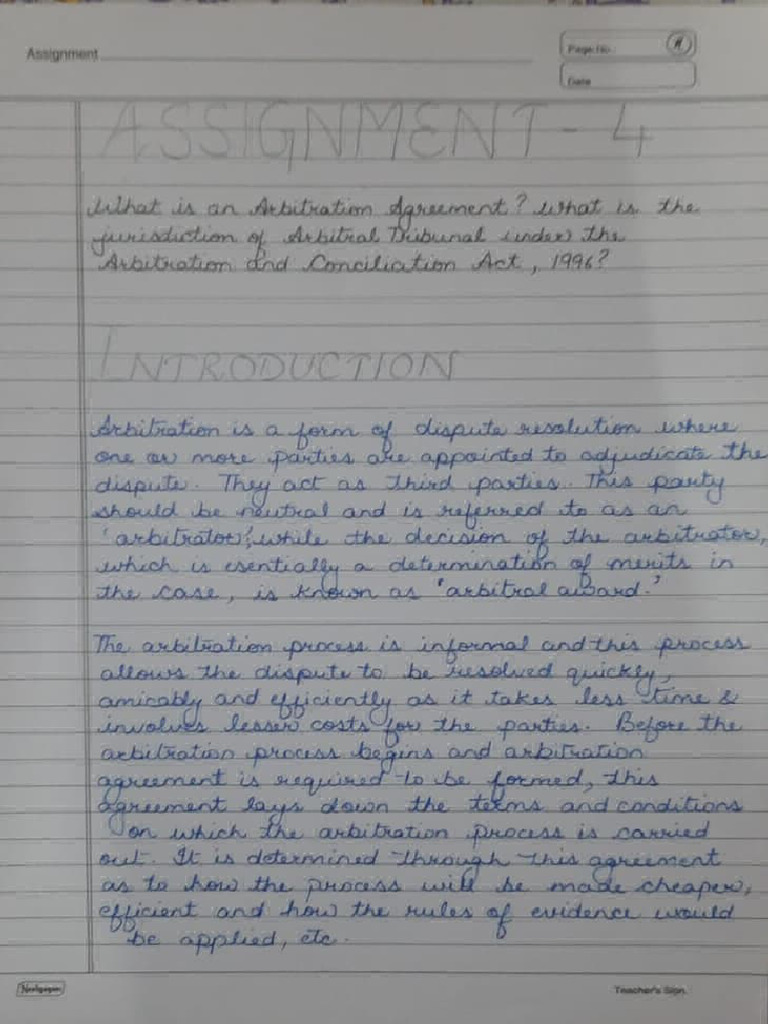 Assignment
Page No.
Date
ASSIGNMENT - 4
What is an Arbitration Agreement? What is the
jurisdiction of Arbitral Tribunal under the
Arbitration and Conciliation Act, 1996?
INTRODUCTION
Arbitration is a form of dispute resolution where
one or more parties are appointed to adjudicate the
dispute. They act as third parties. This party
should be neutral and is referred to as an
'arbitrator', while the decision of the arbitrator,
which is esentially a determination of merits in
the case, is known as 'arbitral award.'
The arbitration process is informal and this process
allows the dispute to be resolved quickly,
amicably and efficiently as it takes less time &
involves lesser costs for the parties. Before the
arbitration process begins and arbitration
agreement is required to be formed, this
agreement lays down the terms and conditions
on which the arbitration process is carried
out. It is determined through this agreement
as to how the process will be made cheaper,
efficient and how the rules of evidence would
be applied, etc.
Teacher's Sign.